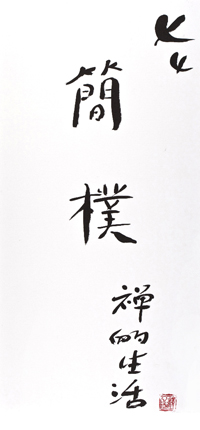 簡樸
禪的生活